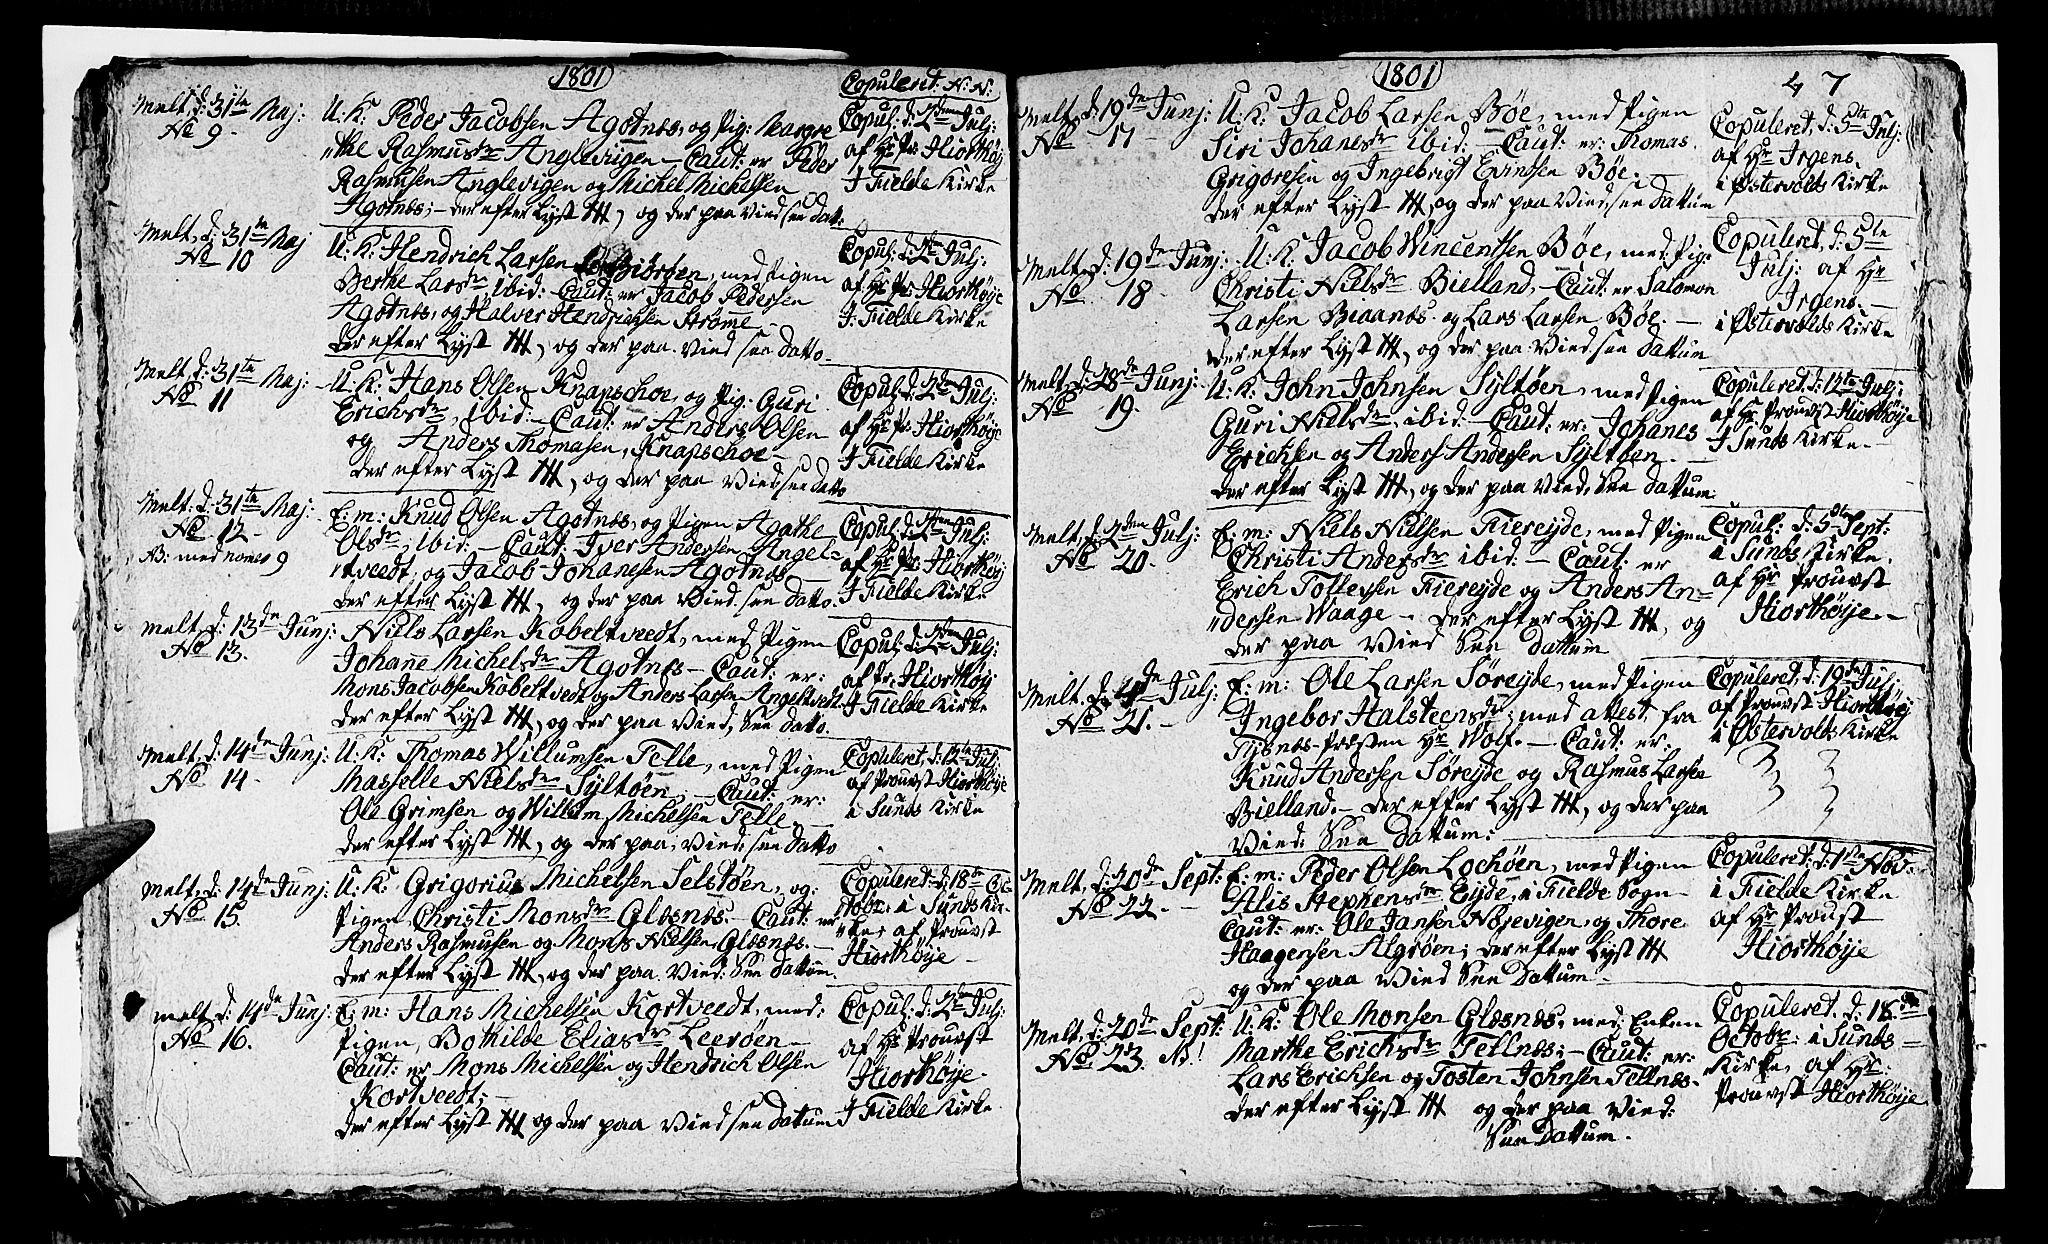 1801
Copuleret. N: N:
Melt. d: 31te Maj:
No 9.
U: K: Peder Jacobsen Agotnes, og Pig: Margre
"the Rasmusdr Anglevigen — Caut: er Peder
Rasmusen Anglevigen og Michel Michelsen
Agotnes; — der efter Lyst, og der paa Vied, see Datt:
Copul: d: 2den Julj:
af Hr Pr: Hiorthøj
I Fielde Kirke
Melt. d: 31te Maj
No 10
U: K: Hendrich Larsen Biørøen, med Pigen
Berthe Larsdr ibid: — Caut: er Jacob Pedersen
Agotnes, og Halver Hendrichsen Strømme —
der efter Lyst, og der paa Vied see Datto.
Copul: d: 2den Julj:
af Hr Pr: Hiorthøje
I: Fielde Kirke
Melt. d: 31te Maj:
No 11
U: K: Hans Olsen Knapschoe, og Pig: Guri
Erichsdr, ibid: — Caut: er Anders Olsen
og Anders Thomasen, Knapschoe —
der efter Lyst, og der paa Vied, see Datto
Copul: d: 2de Julj:
af Hr Pr: Hiorthøje
I Fielde Kirke
Melt: d: 31te Maj:
No 12.
NB: med nomes 9
E: m: Knud Olsen Agotnes, og Pigen Agathe
Olsdr, ibid: — Caut: Iver Andersen Angel=
"tveedt, og Jacob Johanesen Agotnes —
der efter Lyst, og der paa Vied. see Datto.
Copul: d: 2den Julj:
af Hr Pr: Hiorthøj
I Fielde Kirke
Melt d: 13de Junj:
No 13.
Niels Larsen Kobeltveedt, med Pigen
Johane Michelsdr Agotnes — Caut: er:
Mons Jacobsen Kobeltvedt og Anders Larsen Angeltvedt
der efter Lyst, og der paa Vied, See Datto.
Copul: d: 2den Julj:
af Pr: Hiorthøj
I Fielde Kirke
Melt. d: 14de Junj:
No 14
U: K: Thomas Willumsen Telle, med Pigen
Masselle Nielsdr Syltøen, — Caut: er:
Ole Grimsen og Willum Michelsen Telle. —
der efter Lyst, og der paa, Vied, see Datto
Copuleret, d: 12te Julj:
af Prouvst Hiorthøje
i Sunds Kirke
Melt. d: 14de Junj:
No 15.
U: K: Grigorius Michelsen Selstøen, og:
Pigen Christi Monsdr Glesnes. — Caut: er
Anders Rasmusen og Mons Nielsen, Glesnes. —
der efter Lyst, og der paa Vied: See Dattum.
Copuleret d: 18te Oc=
"tobr: i Sunds Kir=
"ke, af Prouvst
Hiorthøje —
melt d: 14de Junj:
No 16.
E: m: Hans Michelsen Kortveedt, med:
Pigen, Bothilde Eliasdr Leerøen —
Caut: er Mons Michelsen og Hendrich Olsen
Kortveedt; —
der efter Lyst og der paa Vied see Datum
Copul: d: 2den Julj:
af Hr Prouvst
Hiorthøje.
I Fielde Kirke.
1801
47
Melt. d: 19de Junj:
No 17
U: K: Jacob Larsen Bøe, med Pigen
Siri Johanesdr ibid: — Caut: er: Thomas
Grigoresen og Ingebrigt Evindsen Bøe. —
der efter Lyst, og der paa Vied, see Dattum
Copuleret, d: 5te Julj:
af Hr Irgens.
i Østervolds Kirke
Melt. d: 19de Junj:
No 18.
U: K: Jacob Wincentsen Bøe, med Pig:
Christi Nielsdr Bielland, — Caut: er Salomon
Larsen Biaanes. og Lars Larsen Bøe: —
der efter Lyst, og der paa Vied see Dattum
Copuleret, d: 5te
Julj: af Hr
Irgens. —
i Østervolds Kirke
Melt. d: 28de Junj:
No 19.
U: K: John Johnsen Syltøen, med Pigen
Guri Nielsdr, ibid: — Caut: er: Johanes
Erichsen og Anders Andersen Syltøen. —
der efter Lyst, og der paa Vied, See Dattum
Copuleret, d: 12te Julj:
af Hr Prouvst Hiorthøje
I Sunds Kirke. —
Melt. d: 2den Julj:
No 20.
E: m: Niels Nielsen Tiereyde, med Pigen
Christi Andersdr ibid: — Caut: er
Erich Tollefsen Tiereyde og Anders An=
"dersen Waage — der efter Lyst, og
der paa Vied See Dattum
Copul: d: 5te Sept:
i Sunds Kirke.
af Hr Prouvst
Hiorthøje —
Melt. d: 4de Julj:
No 21. —
E: m: Ole Larsen Søreyde, med Pigen
Ingebor Halsteensdr; med attest fra
Tisnes-Præsten Hr Wolf. — Caut: er:
Knud Andersen Søreyde og Rasmus Larsen
Bielland. — der efter Lyst, og der paa
Vied: See Dattum:
Copuleret, d: 19de Julj:
af Prouvst Hiorthøj
i Østervolds Kirke
Melt. d: 20de Sept:
No 22. —
E: m: Peder Olsen Lochøen, med Pigen
Alis Stephensdr Eyde, i Fielde Sogn —
Caut: er: Ole Jansen Nøjevigen, og Thore
Haagensen Algrøen; der efter Lyst
og der paa Vied See Dattum —
Copuleret: d: 1ste Nov:
i Fielde Kirke
af Hr Prouvst
Hiorthøje
Melt. d: 20de Sept:
No 23. NB!
U: K: Ole Monsen Glesnes, med: Enken
Marthe Erichsdr Tellnes; — Caut: er:
Lars Erichsen og Tosten Johnsen Tellnes.
der efter Lyst og der paa Vied:
See Dattum.
Copuleret. d: 18de
Octobr: i Sunds —
Kirke, af Hr:
Prouvst Hiorthøje